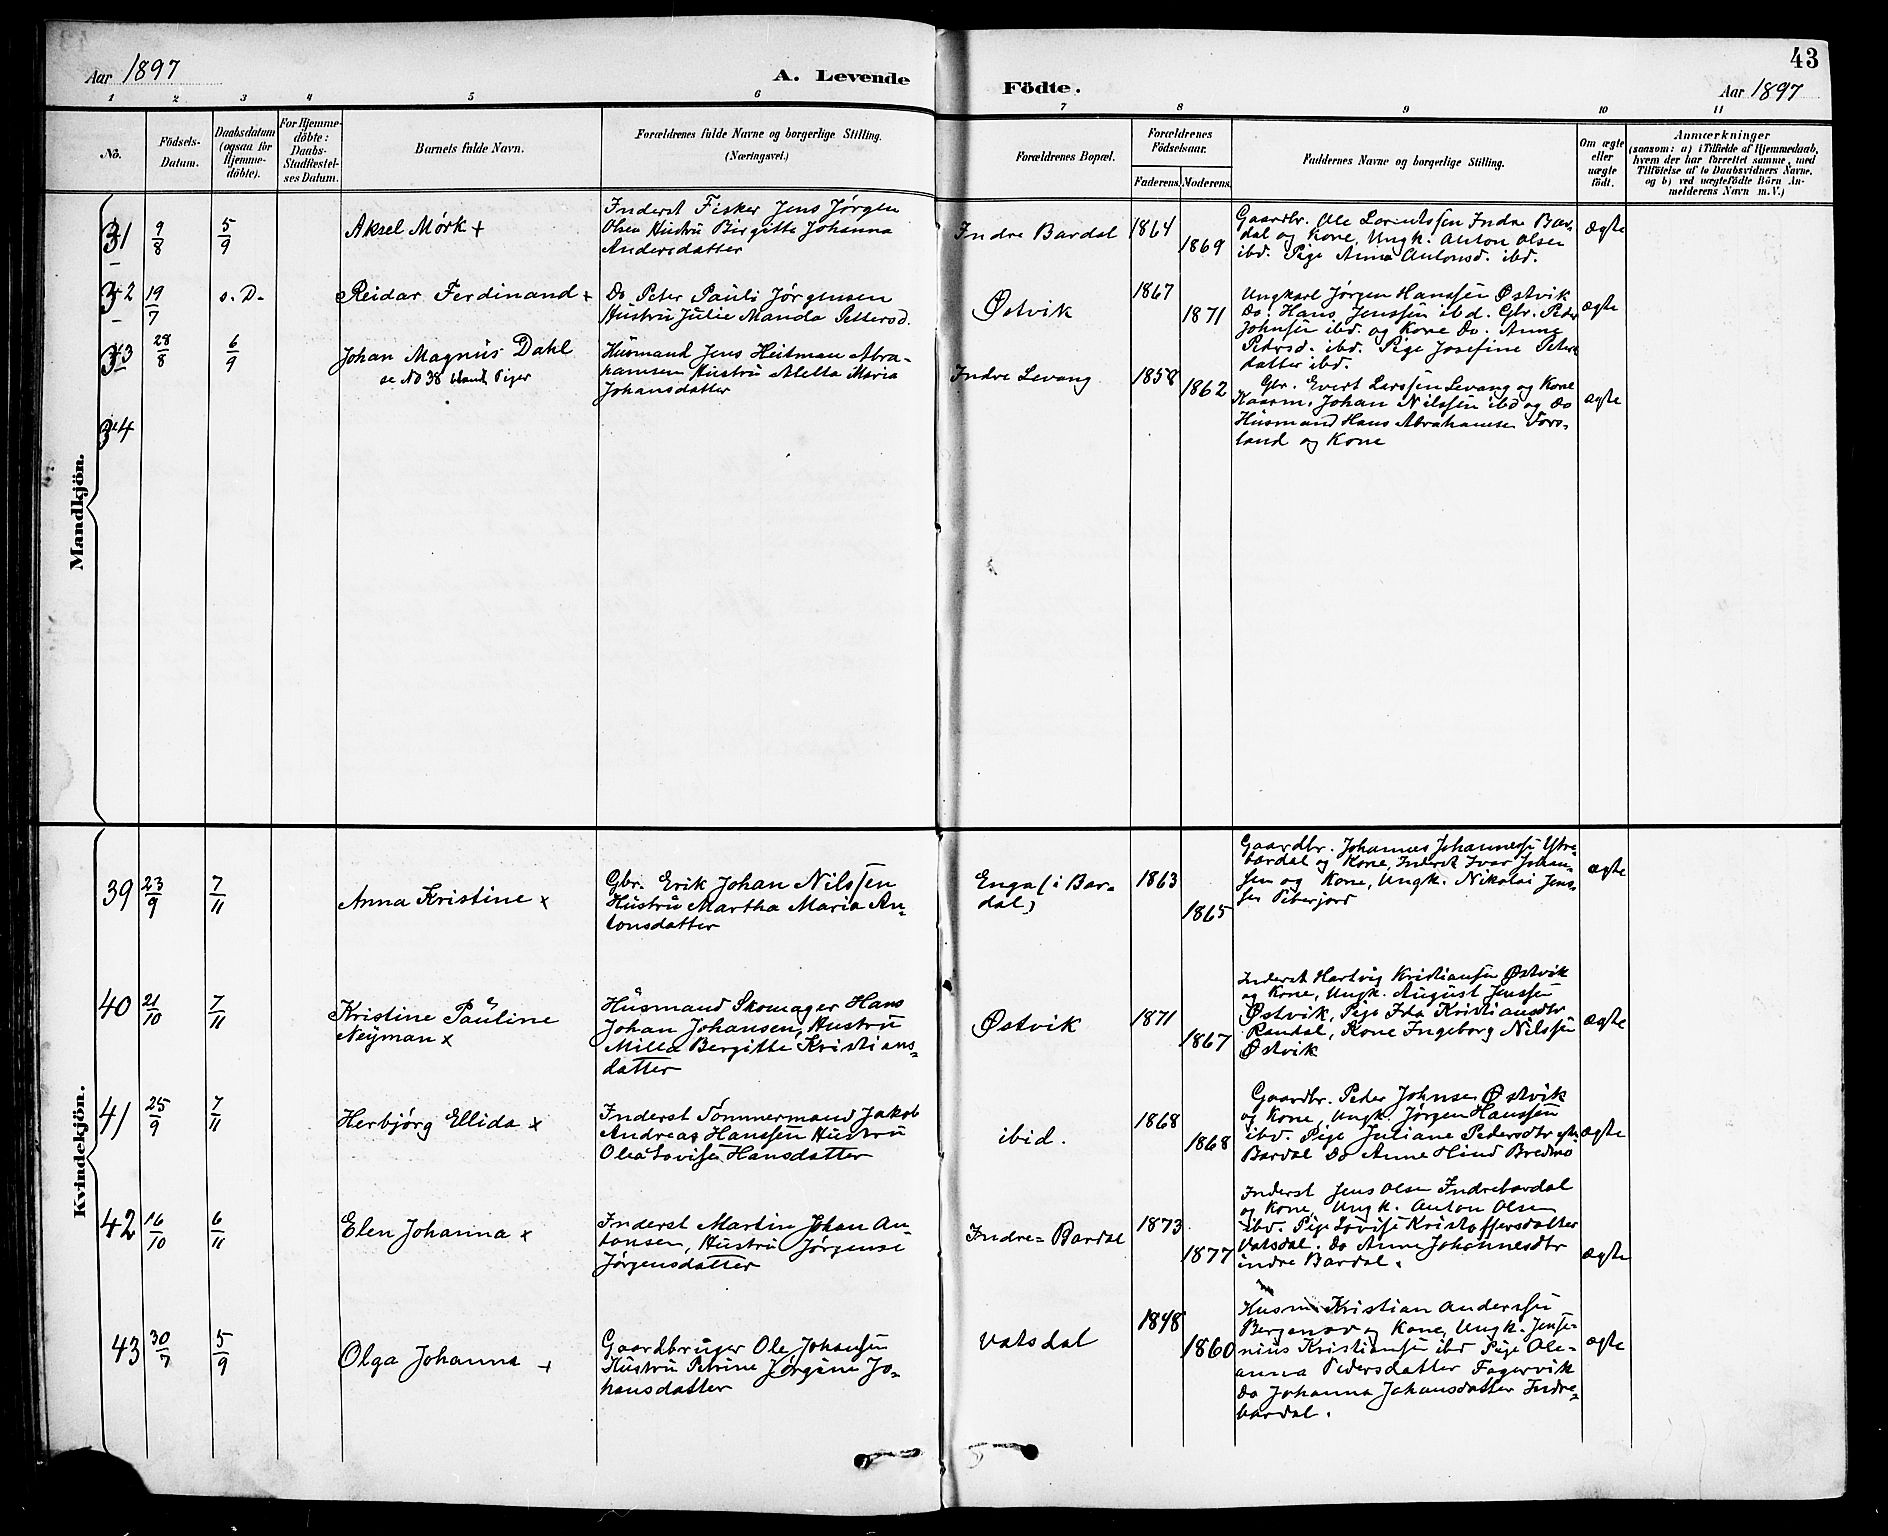 43
Aar 1897
A. Levende
Födte.
Aar 1897
1 2 3 4 5 6 7 8 9 10 11
No.
Födsels-
Datum.
Daabsdatum
(ogsaa for
Hjemme-
döbte).
For Hjemme-
döbte:
Daabs-
Stadfæstel-
ses Datum.
Barnets fulde Navn.
Forældrenes fulde Navne og borgerlige Stilling.
(Næringsvei.)
Forældrenes Bopæl.
Forældrenes
Födselsaar.
Faderens.
Moderens.
Faddernes Navne og borgerlige Stilling.
Om ægte
eller
uægte
födt.
Anmærkninger
(saasom: a) i Tilfælde af Hjemmedaab,
hvem der har forrettet samme, med
Tilföielse af to Daabsvidners Navne,
og b) ved uægtefödte Börn An-
melderens Navn m. V.)
Mandkjön.
31
9/8
5/9
Aksel Mørk +
Inderst Fisker Jens Jørgen
Olsen Hustru Birgitte Johanna
Andersdatter
Indre Bardal
1864
1869
Gaardbr. Ole Larentssen Indre Bar-
dal og Kone, Ungk. Anton Olsen
ibd. Pige Anna Antonsd. ibd.
ægte
32
19/7
s. D.
Reidar Ferdinand +
Do Peter Pauli Jørgensen
Hustru Julie Manda Pettersd.
Østvik
1867
1871
Ungkarl Jørgen Hanssen Østvik
Do. Hans Jenssen ibd. Gbr. Peder
Johnsen ibd. og Kone Do. Anne
Pedersd. ibd. Pige Josefine Peters
datter ibd.
ægte
33
28/8
6/9
Johan Magnus Dahl
se No 38 blandt Piger
Husmand Jens Heitman Abra-
hamsen Hustru Aletta Maria
Johansdatter
Indre Levang
1858
1862
Gbr. Evert Larssen Levang og Kone
Kaarm. Johan Nilssen ibd og do
Husmand Hans Abrahamsen Fors-
land og Kone
ægte
34
Kvindekjön.
39
23/9
7/11
Anna Kristine x
Gbr. Erik Johan Nilssen
Hustru Martha Maria An-
tonsdatter
Enga (i Bar-
dal)
1863
1865
Gaardbr. Johannes Johannessen Ytre-
bardal og Kone, Inderst Ivar Johan-
sen og Kone, Ungk. Nikolai Jens-
sen
ægte
40
21/10
7/11
Kristine Pauline
Neyman x
Husmand Skomager Hans
Johan Johansen, Hustru
Milla Bergitte Kristians-
datter
Østvik
1871
1867
Inderst Hartvig Kristiansen Østvik
og Kone, Ungk. August Jenssen
Østvik, Pige Ida Kristiansdtr
Randal, Kone Ingeborg Nilssen
Østvik
ægte
41
25/9
7/11
Herbjørg Ellida x
Inderst Tømmermand Jakob
Andreas Hanssen Hustru
Olea Lovise Hansdatter
ibid.
1868
1868
Gaardbr. Peder Johnsen Østvik
og Kone, Ungk. Jørgen Hanssen
ibd. Pige Juliane Pedersdtr ytre
Bardal Do Anne Hind Bredmo
ægte
42
16/10
6/11
Elen Johanna x
Inderst Martin Johan An-
tonsen, Hustru Jørgense
Jørgensdatter
Indre-Bardal
1873
1877
Inderst Jens Olsen Indrebardal
og Kone, Ungk. Anton Olsen
ibd. Pige Lovise Kristoffersdatter
Vatsdal. Do Anne Johannesdtr
indre Bardal.
ægte
43
30/7
5/9
Olga Johanna +
Gaardbruger Ole Johansen
Hustru Petrine Jørgine Jo-
hansdatter
Vatsdal
1848
1860
Husm Kristian Anderssen
og Kone, Ungk. Jense-
nius Kristiansen ibd Pige Ole-
anna Pedersdatter Fagervik
Do Johanna Johansdatter Indre-
bardal.
ægte